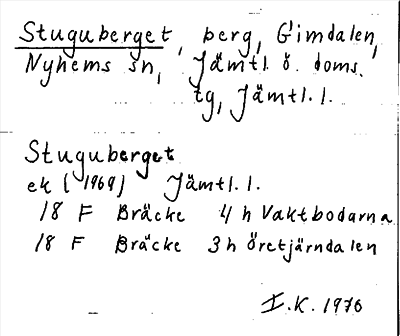 Stuguberget, berg, Gimdalen,
Nyhems sn, Jämtl. ö. doms.
tg, Jämtl. l.
Stuguberget
ek (1969) Jämtl. l.
18 F Bräcke 4 h Vaktbodarna
18 F Bräcke 3 h Öretjärndalen
I.K. 1976